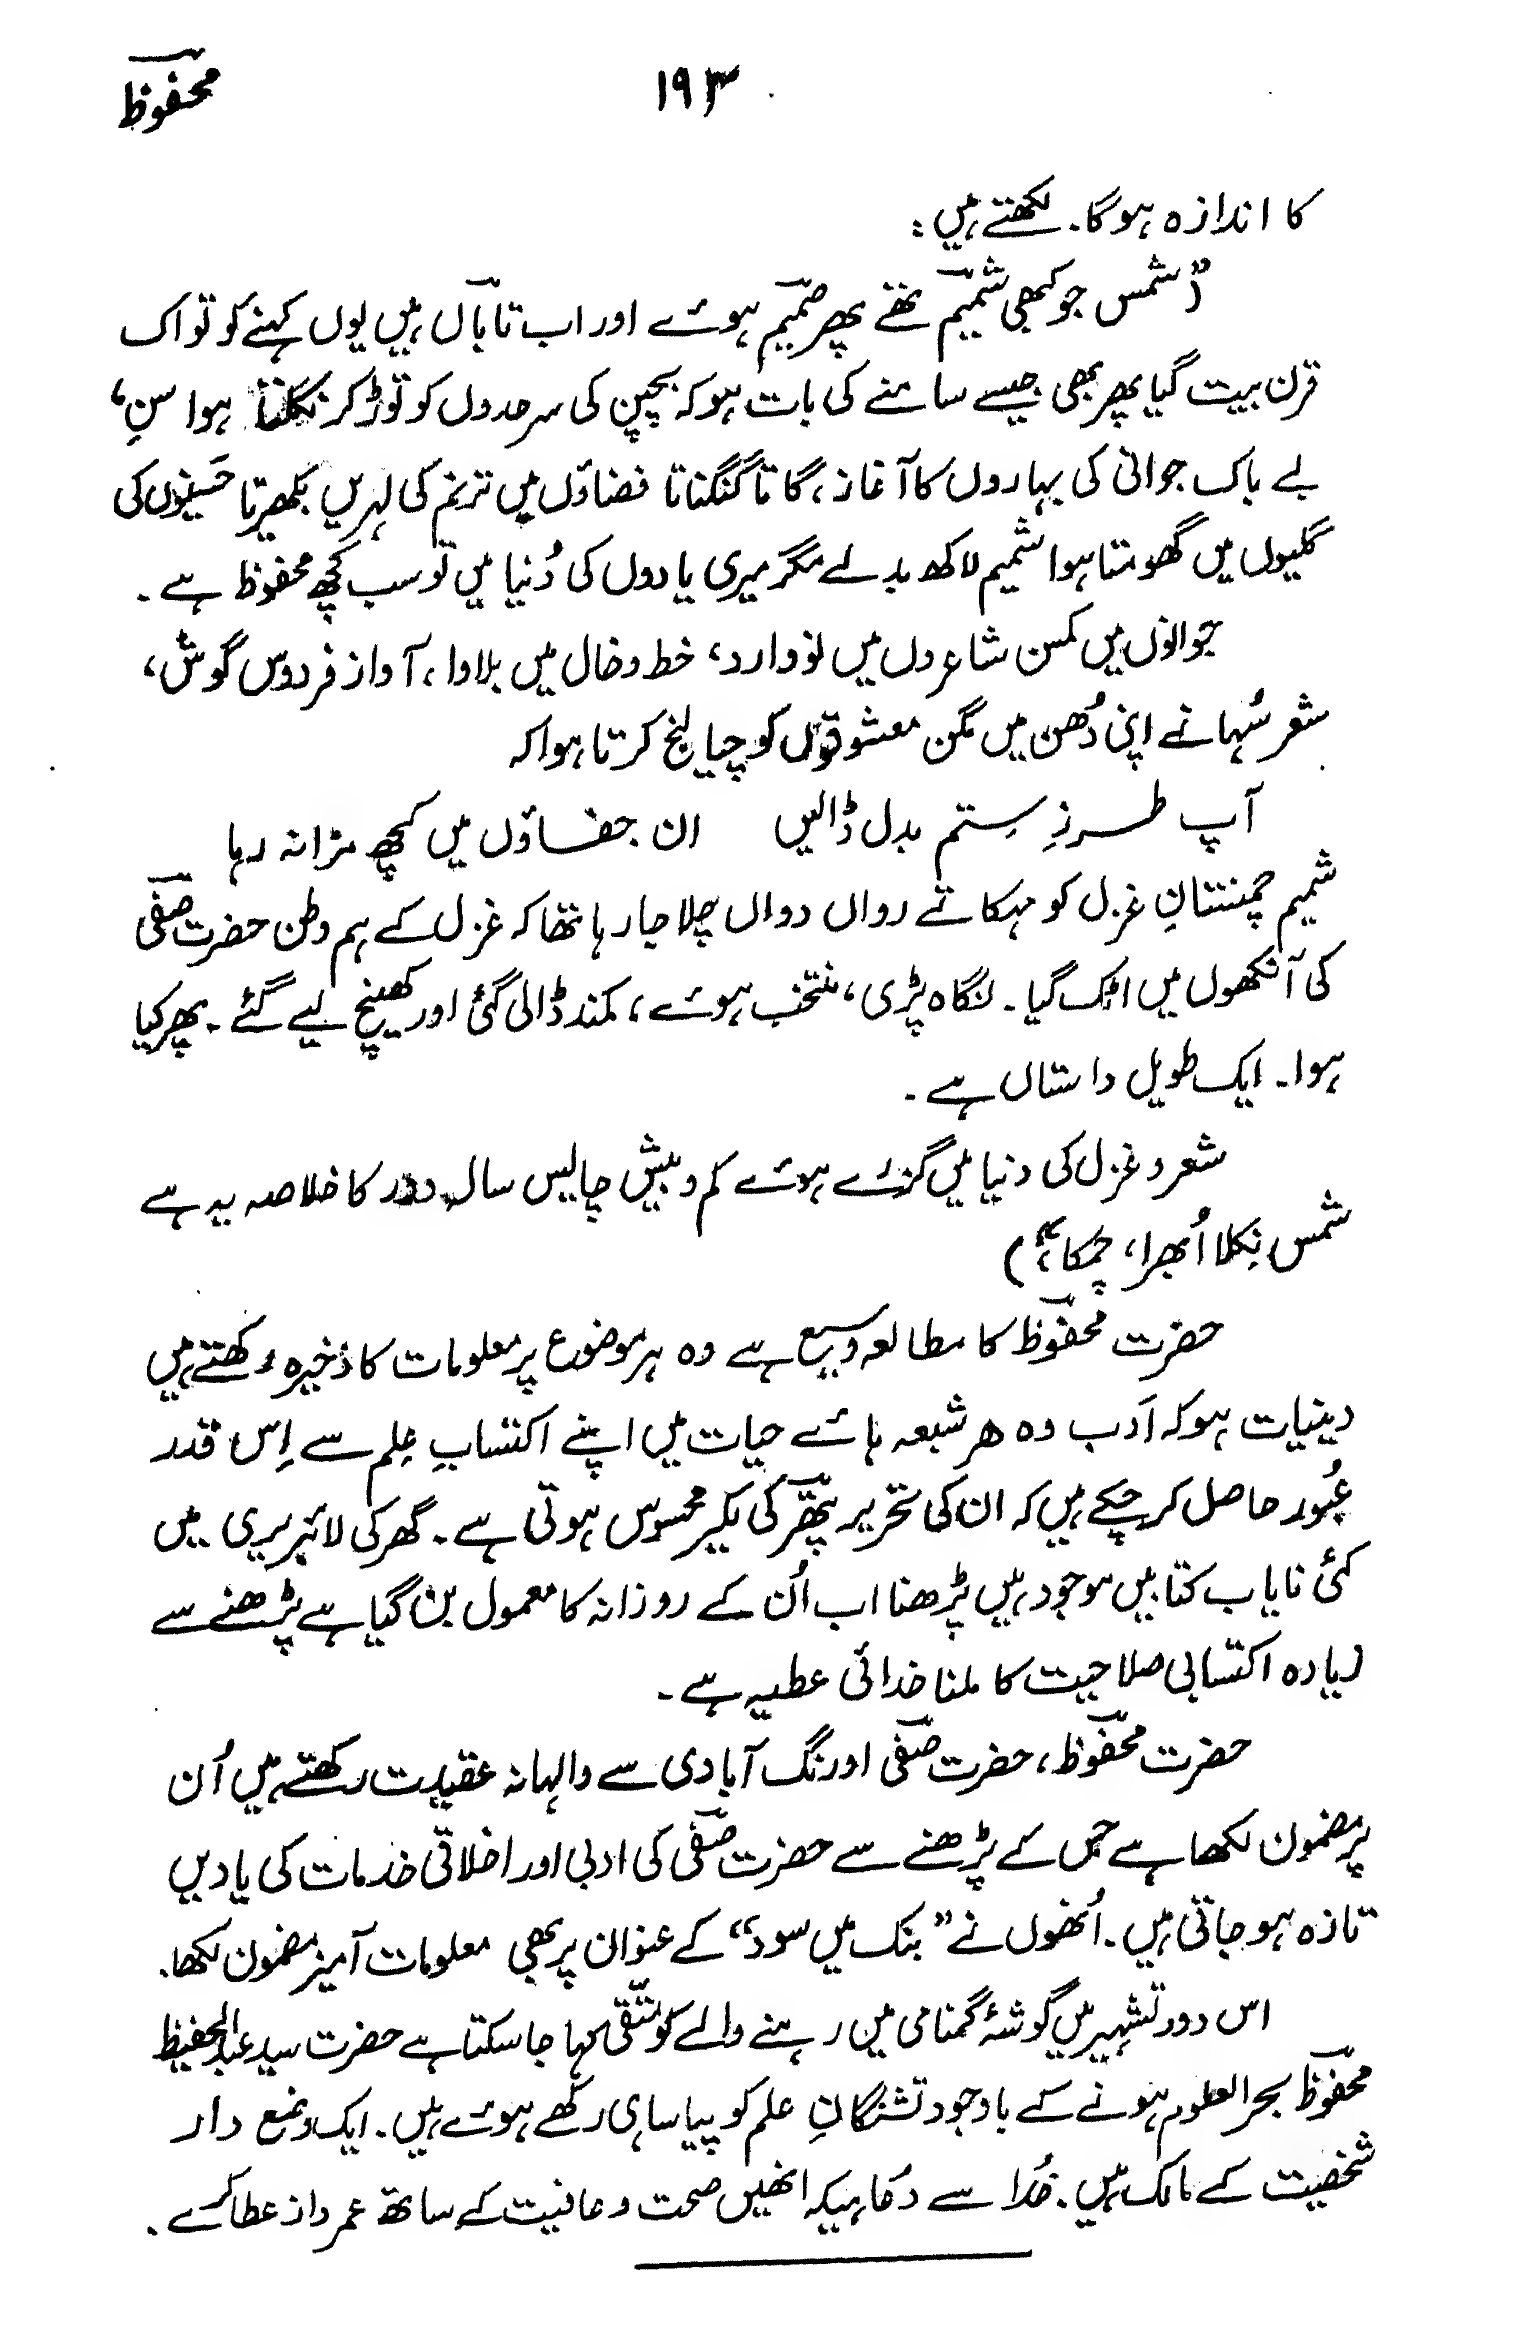 محفوظؔ
۱۹۳
کا اندازہ ہوگا۔ لکھتے ہیں:
("شمس جو کبھی شمیمؔ تھے پھر صمیمؔ ہوئے اور اب تاباںؔ ہیں یوں کہنے کو تو اک
قرن بیت گیا پھر بھی جیسے سامنے کی بات ہو کہ بچپن کی سرحدوں کو توڑ کر نکلتا ہوا سنِ،
بے باک جوانی کی بہاروں کا آغاز، گاتا گنگناتا فضاؤں میں ترنم کی لہریں بکھیرتا حَسینوں کی
گلیوں میں گھومتا ہوا شمیم لاکھ بدلے مگر میری یادوں کی دُنیا میں تو سب کچھ محفوظ ہے۔
جوانوں میں کمسن شاعروں میں نو وارد، خط و خال میں بلاوا، آواز فردوس گوش،
شعر سُہانے اپنی دُھن میں مگن معشوقوں کو چیالنج کرتا ہوا کہ
آپ طرزِ ستم بدل ڈالیں ان جفاؤں میں کچھ مزا نہ رہا
شمیم چمنستانِ غزل کو مہکاتے رواں دواں چلا جا رہا تھا کہ غزل کے ہم وطن حضرت صفیؔ
کی آنکھوں میں اٹک گیا۔ نگاہ پڑی، منتخب ہوئے، کمند ڈالی گئی اور کھینچ لیے گئے۔ پھر کیا
ہوا۔ ایک طویل داستاں ہے۔
شعر و غزل کی دنیا میں گزرے ہوئے کم و بیش چالیس سالہ دور کا خلاصہ یہ ہے
شمس نِکلا اُبھرا، چمکا،")
حضرت محفوظؔ کا مطالعہ وسیع ہے وہ ہر موضوع پر معلومات کا ذخیرہ رکھتے ہیں
دینیات ہو کہ اَدب وہ ہر شعبہ ہائے حیات میں اپنے اکتسابِ عِلم سے اِس قدر
عُبور حاصل کر چکے ہیں کہ ان کی تحریر پتھّر کی لکیر محسوس ہوتی ہے۔ گھر کی لائبریری میں
کئی نایاب کتابیں موجود ہیں پڑھنا اب اُن کے روزانہ کا معمول بن گیا ہے پڑھنے سے
زیادہ اکتسابی صلاحیت کا ملنا خدائی عطیہ ہے۔
حضرت محفوظؔ، حضرت صفیؔ اورنگ آبادی سے والہانہ عقیدت رکھتے ہیں اُن
پر مضمون لکھا ہے جس کے پڑھنے سے حضرت صفیؔ کی ادبی اور اخلاقی خدمات کی یادیں
تازہ ہو جاتی ہیں۔ اُنھوں نے "بنک میں سود" کے عنوان پر بھی معلومات آمیز مضمون لکھا۔
اس دور تشہیر میں گوشۂ گمنامی میں رہنے والے کو متّقی کہا جاسکتا ہے حضرت سید عبدالحفیظ
محفوظؔ بحرالعلوم ہونے کے باوجود تشنگانِ علم کو پیاسا ہی رکھے ہوئے ہیں۔ ایک وضع دار
شخصیت کے مالک ہیں۔ خُدا سے دُعا ہیکہ انھیں صحت و عافیت کے ساتھ عمر دراز عطا کرے۔